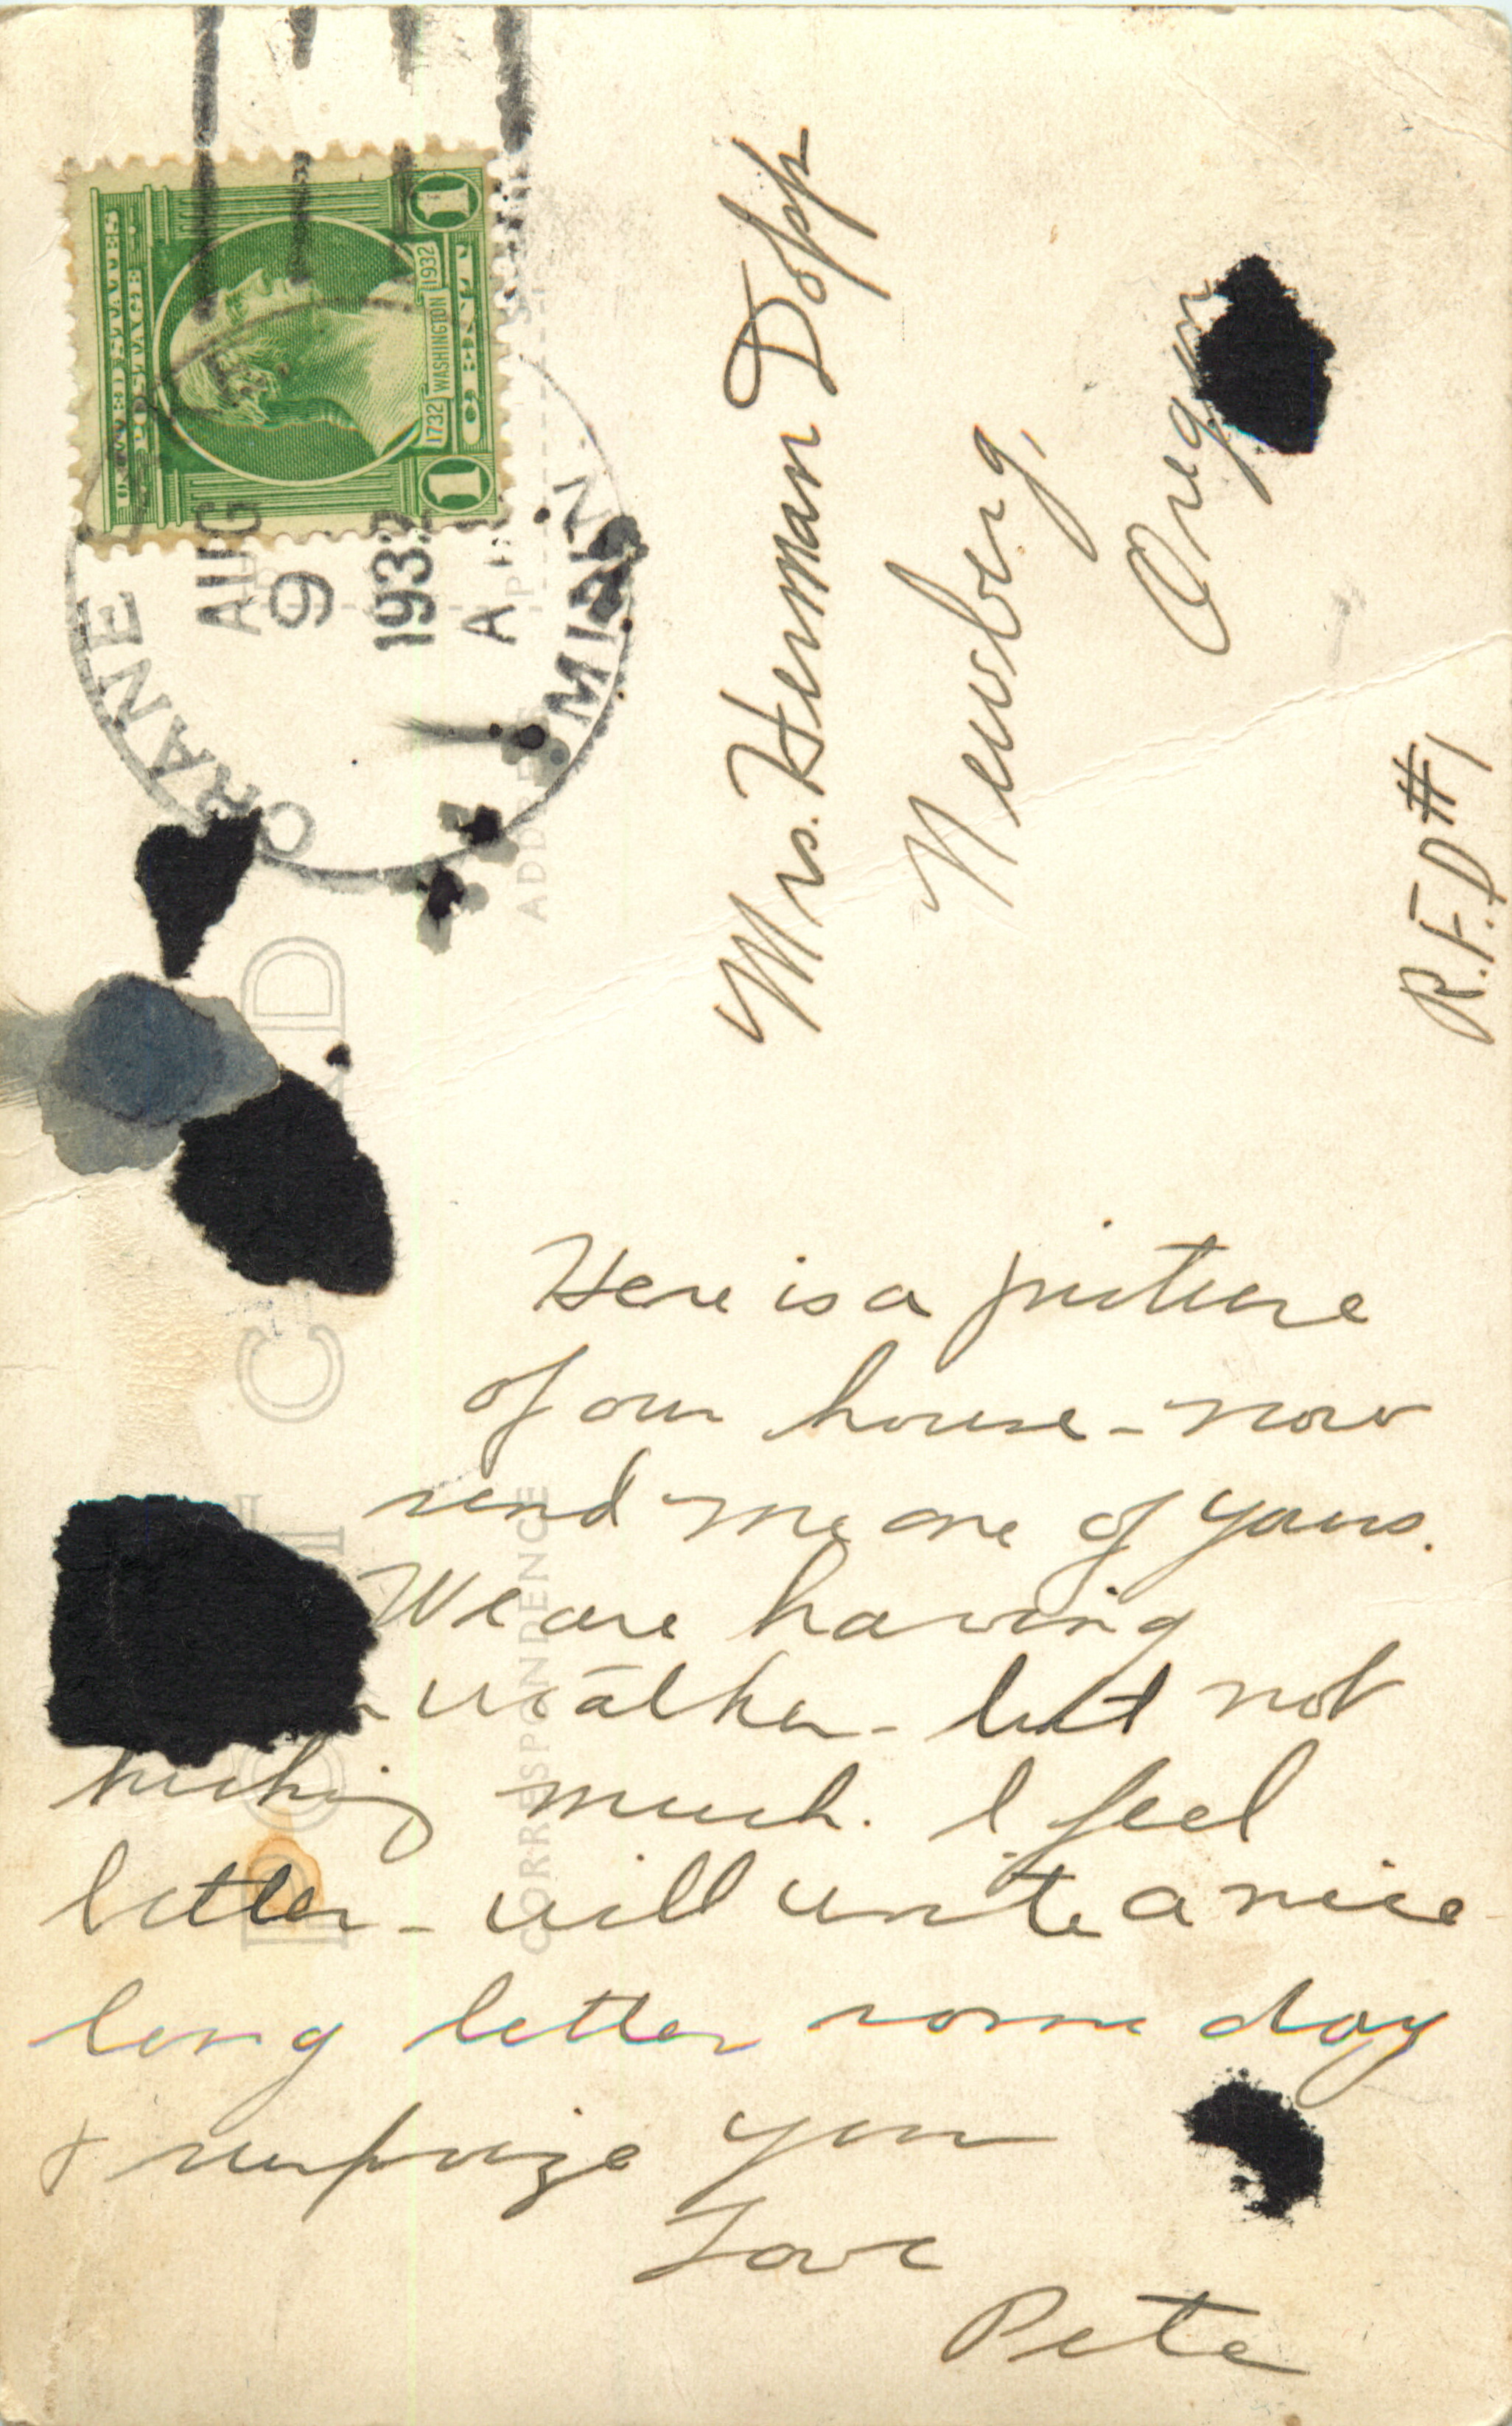 UNITED STATES
POSTAGE
1732 WASHINGTON 1932
1 CENT 1
CRANE
AUG
9
1932
A
MIAN
POST CARD
CORRESPONDENCE
Mrs. Herman Dopp
Newberg,
Oregon
R.F.D #1
Here is a picture
of our house - now
send me one of yours.
We are having
weather - but not
much. I feel
better - will write a nice
long letter some day
& surprize you
Love
Pete